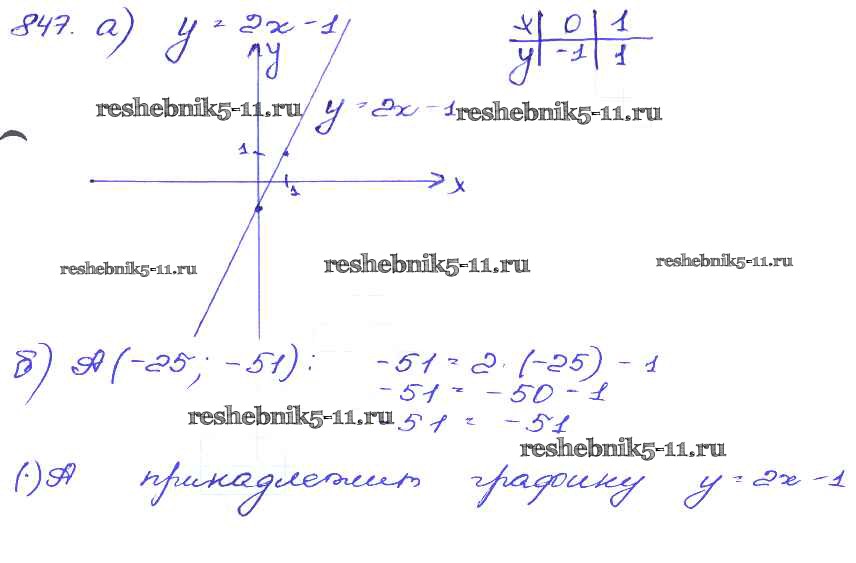 847. а) y = 2x - 1
x 0 1
y -1 1
y
reshebnik5-11.ru y = 2x - 1 reshebnik5-11.ru
1
1 x
reshebnik5-11.ru reshebnik5-11.ru reshebnik5-11.ru
б) A(-25; -51): -51 = 2·(-25) - 1
-51 = -50 - 1
reshebnik5-11.ru 51 = -51
reshebnik5-11.ru
(·)A принадлежит графику y = 2x - 1